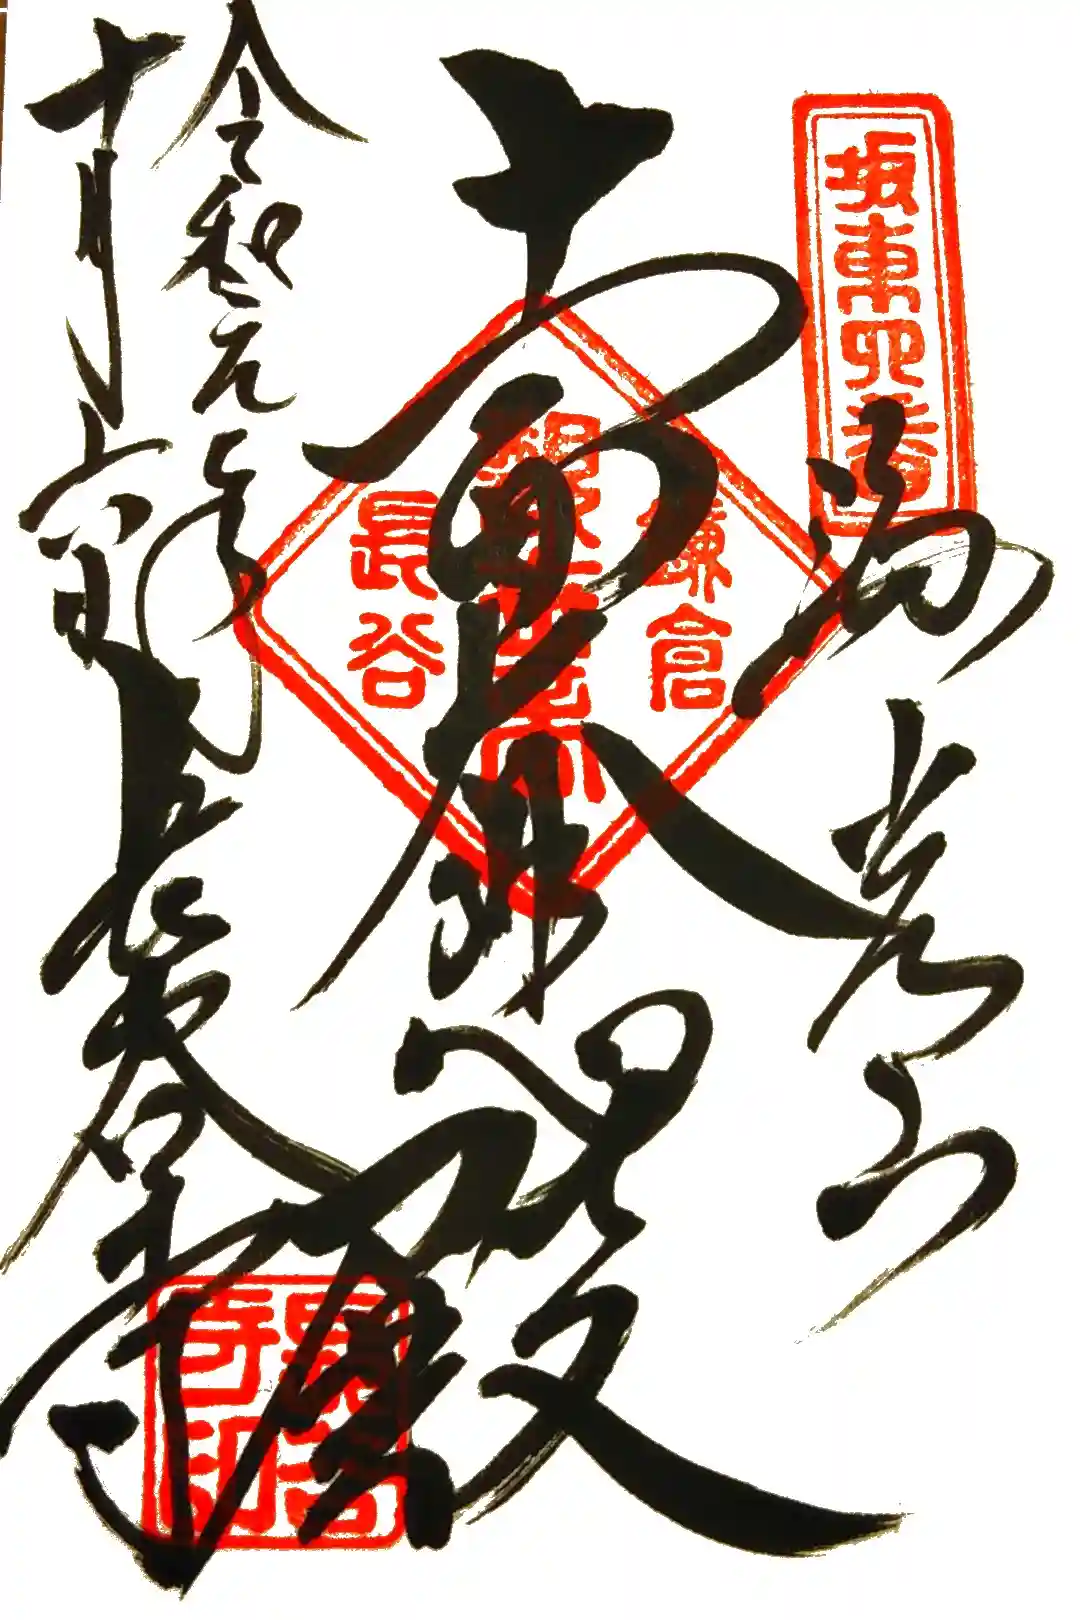 坂東四番
海光山
十一面大悲殿
鎌倉
観世音
長谷
令和元年
十月六日
長谷寺
長谷
寺印